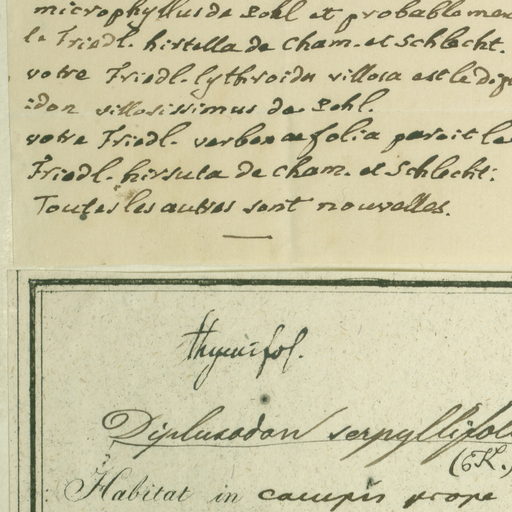 microphyllus de Pohl et probablemen
le Friedl. hirtella de Cham. et Schlecht.
votre Friedl. lythroides villosa est le Dip
idon villosissimus de Pohl.
votre Friedl. verbenaefolia paroit le
Friedl. hirsuta de Cham. et Schlecht:
Toutes les autres sont nouvelles.
thymifol.
Diplusodon serpyllifol
Habitat in campis prope